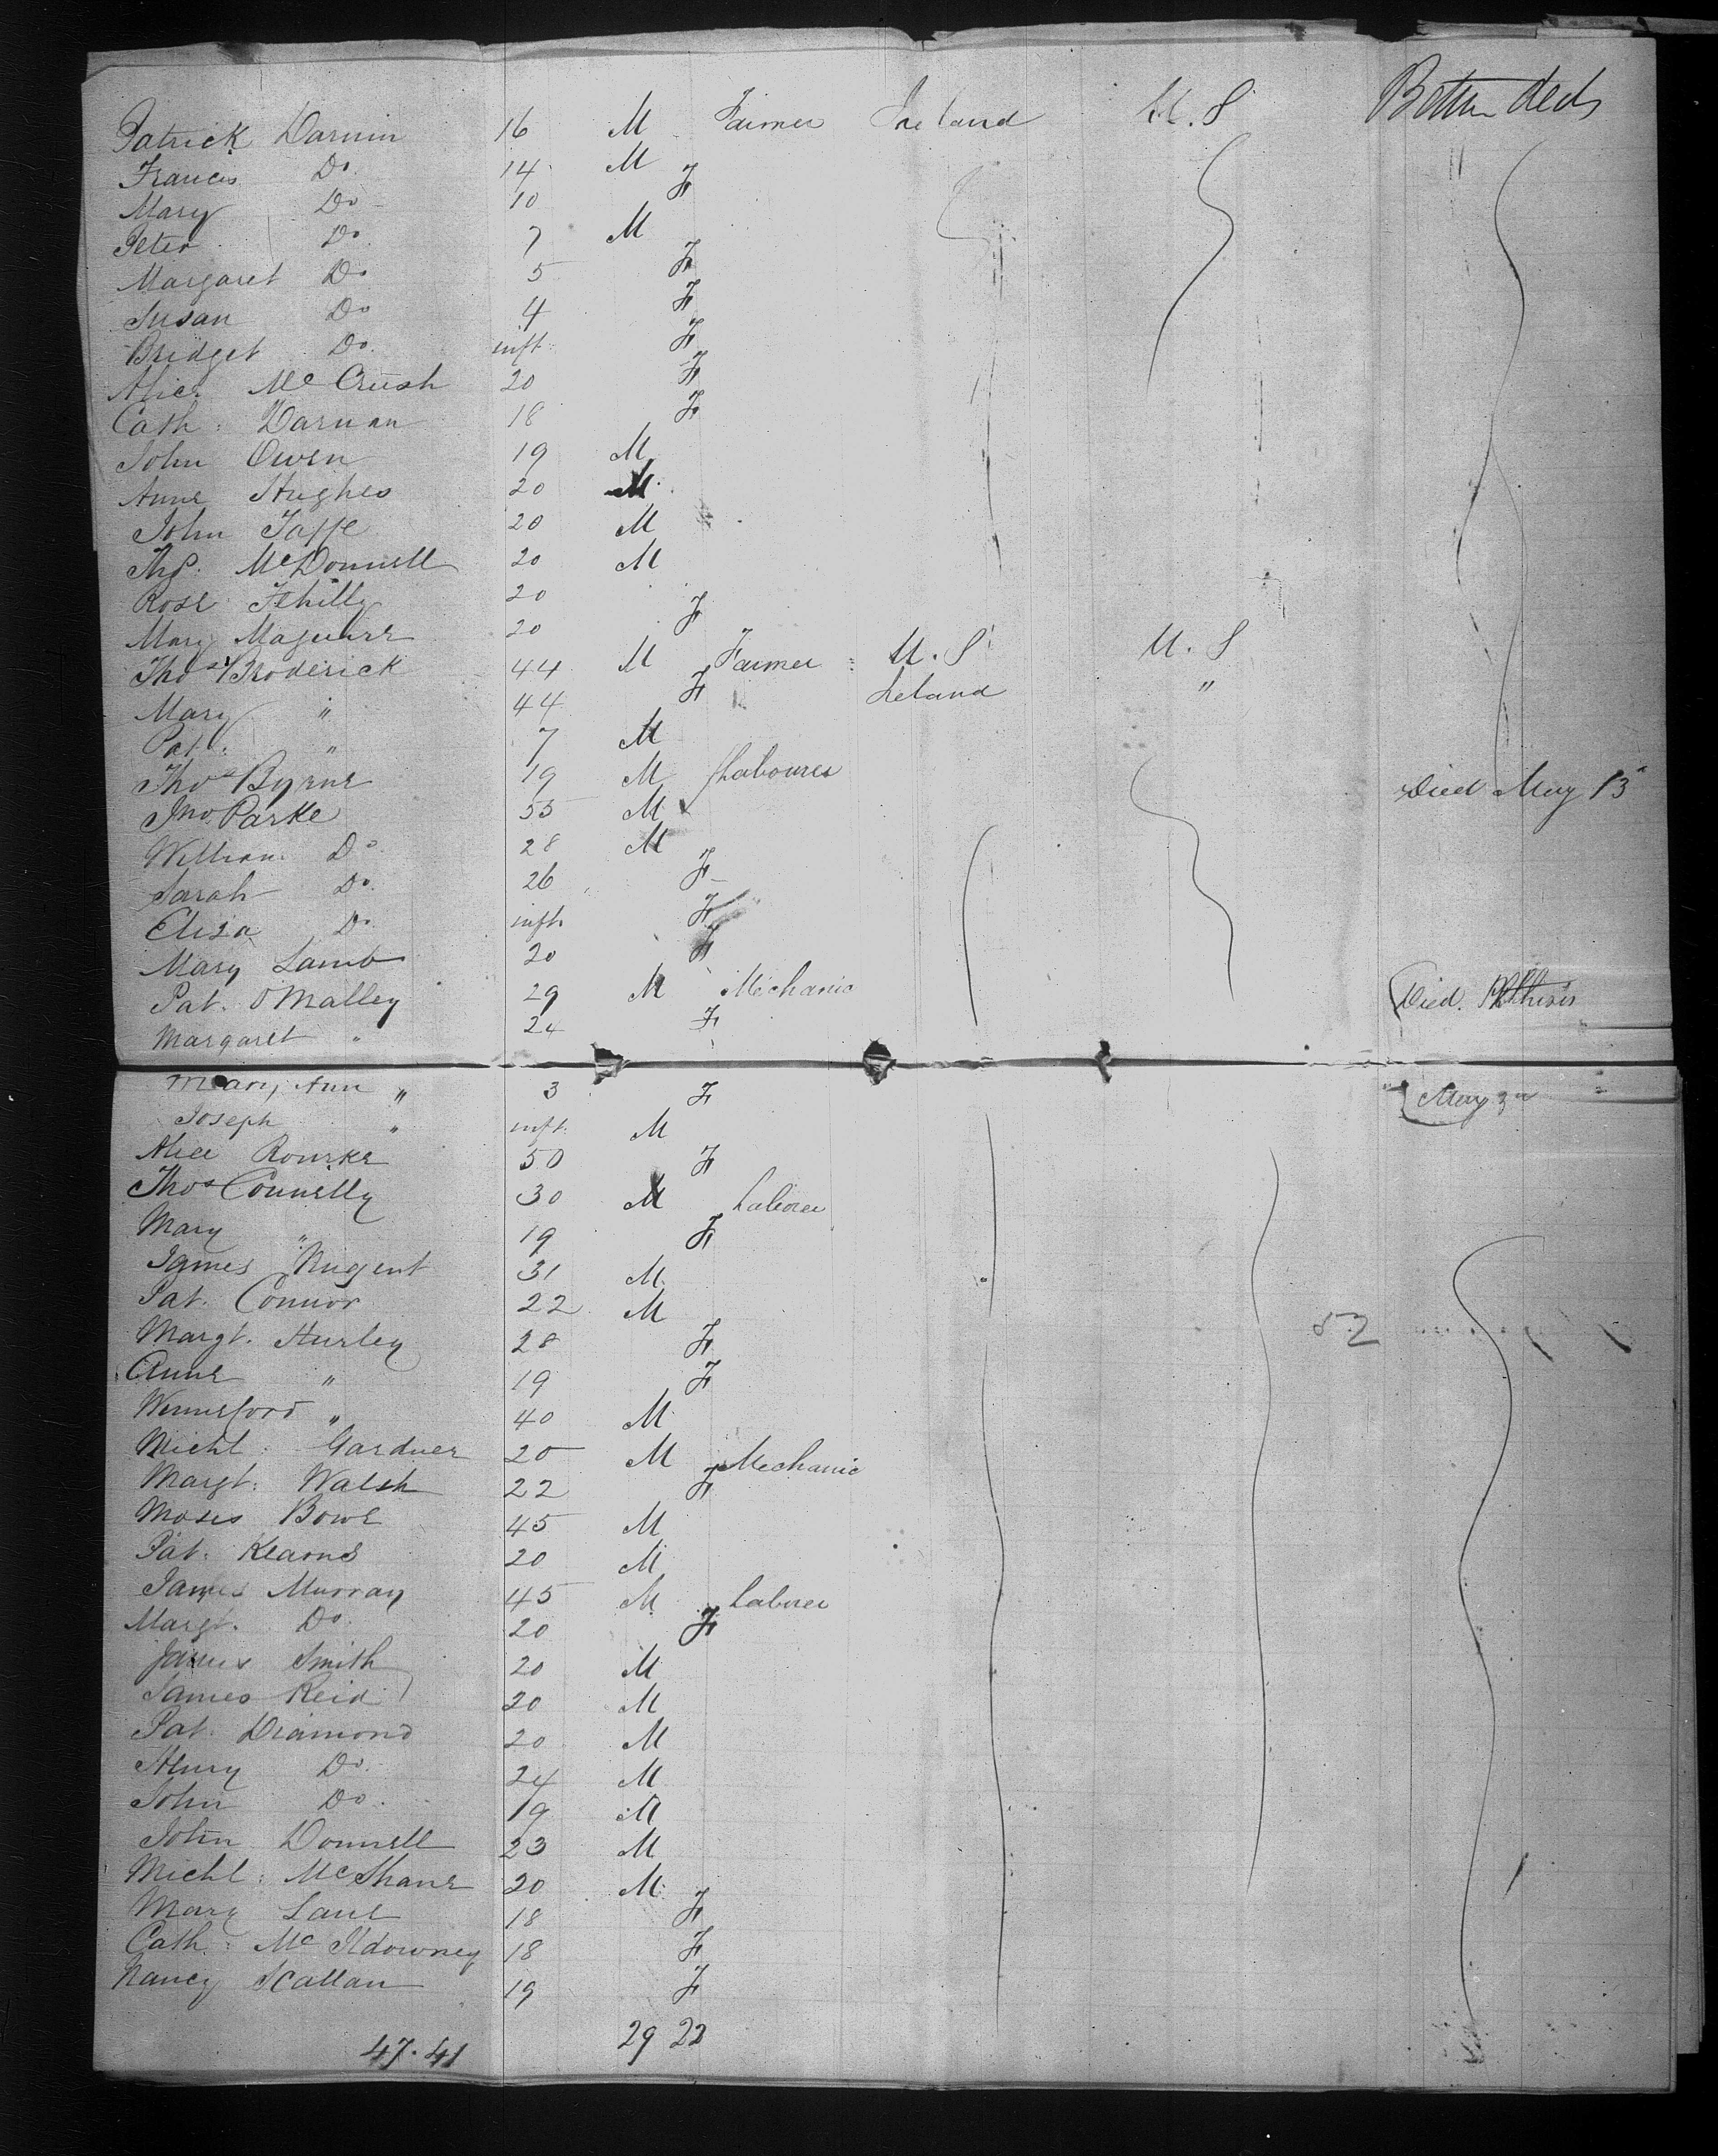 Patrick Darnin 16 M Farmer Ireland U.S Betw. decks
Francis Do 14 M
Mary Do 10 F
Peter Do 7 M
Margaret Do 5 F
Susan Do 4 F
Bridget Do. inft. F
Alice McCrush 20 F
Cath: Darnan 18 F
John Owen 19 M
Anne Hughes 20 M
John Taffe 20 M
Ths. McDonnell 20 M
Rose 20
Mary Maguire 20 F
Thos Broderick 44 M Farmer U.S U.S
Mary " 44 F Ireland "
Pat: " 7 M
Thos Byrne 19 M Labourer Died May 13
Jno Parke 55 M
William Do 28 M
Sarah Do. 26 F
Eliza Do inft. F
Mary Lamb 20 F
Pat. O'Malley 29 M Mechanic Died. Phthisis
Margaret " 24 F
Mary Ann " 3 F May 3
Joseph " inft. M
Alice Rourke 50 F
Thos Connelly 30 M Laborer
Mary " 19 F
James Nugent 31 M
Pat. Connor 22 M
Margt. Hurley 28 F 52
Anne " 19 F
Wennesford " 40 M
Michl: Gardner 20 M Mechanic
Margt: Walsh 22 F
Moses Bowe 45 M
Pat. Kearns 20 M
James Murray 45 M Laborer
Margt. Do. 20 F
James Smith 20 M
James Reid 20 M
Pat. Diamond 20 M
Henry Do. 24 M
John Do. 19 M
John Donnell 23 M
Michl: McShane 20 M
Mary Lane 18 F
Cath: McIldowney 18 F
Nancy Scallan 19 F
47.41 29 23